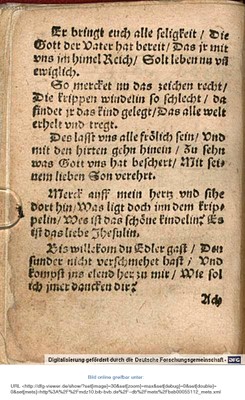 Er bringt euch alle seligkeit / Die
Gott der Vater hat bereit / Das jr mit
vns im himel Reich / Solt leben nu vñ
ewiglich.
So mercket nu das zeichen recht /
Die krippen windelin so schlecht / da
findet jr das kind gelegt / Das alle welt
erhelt vnd tregt.
Des lasst vns alle frölich sein / Vnd
mit den hirten gehn hinein / Zu sehn
was Gott vns hat beschert / Mit sei-
nem lieben Son verehrt.
Merck auff mein hertz vnd sihe
dort hin / Was ligt doch inn dem krip-
pelin / Wes ist das schöne kindelin? Es
ist das liebe Jhesulin.
Bis willekom du Edler gast / Den
sunder nicht verschmehet hast / Vnd
kompst ins elend her zu mir / Wie sol
ich jmer dancken dir?
Ach
Digitalisierung gefördert durch die Deutsche Forschungsgemeinschaft - DFG
Bild online greifbar unter: